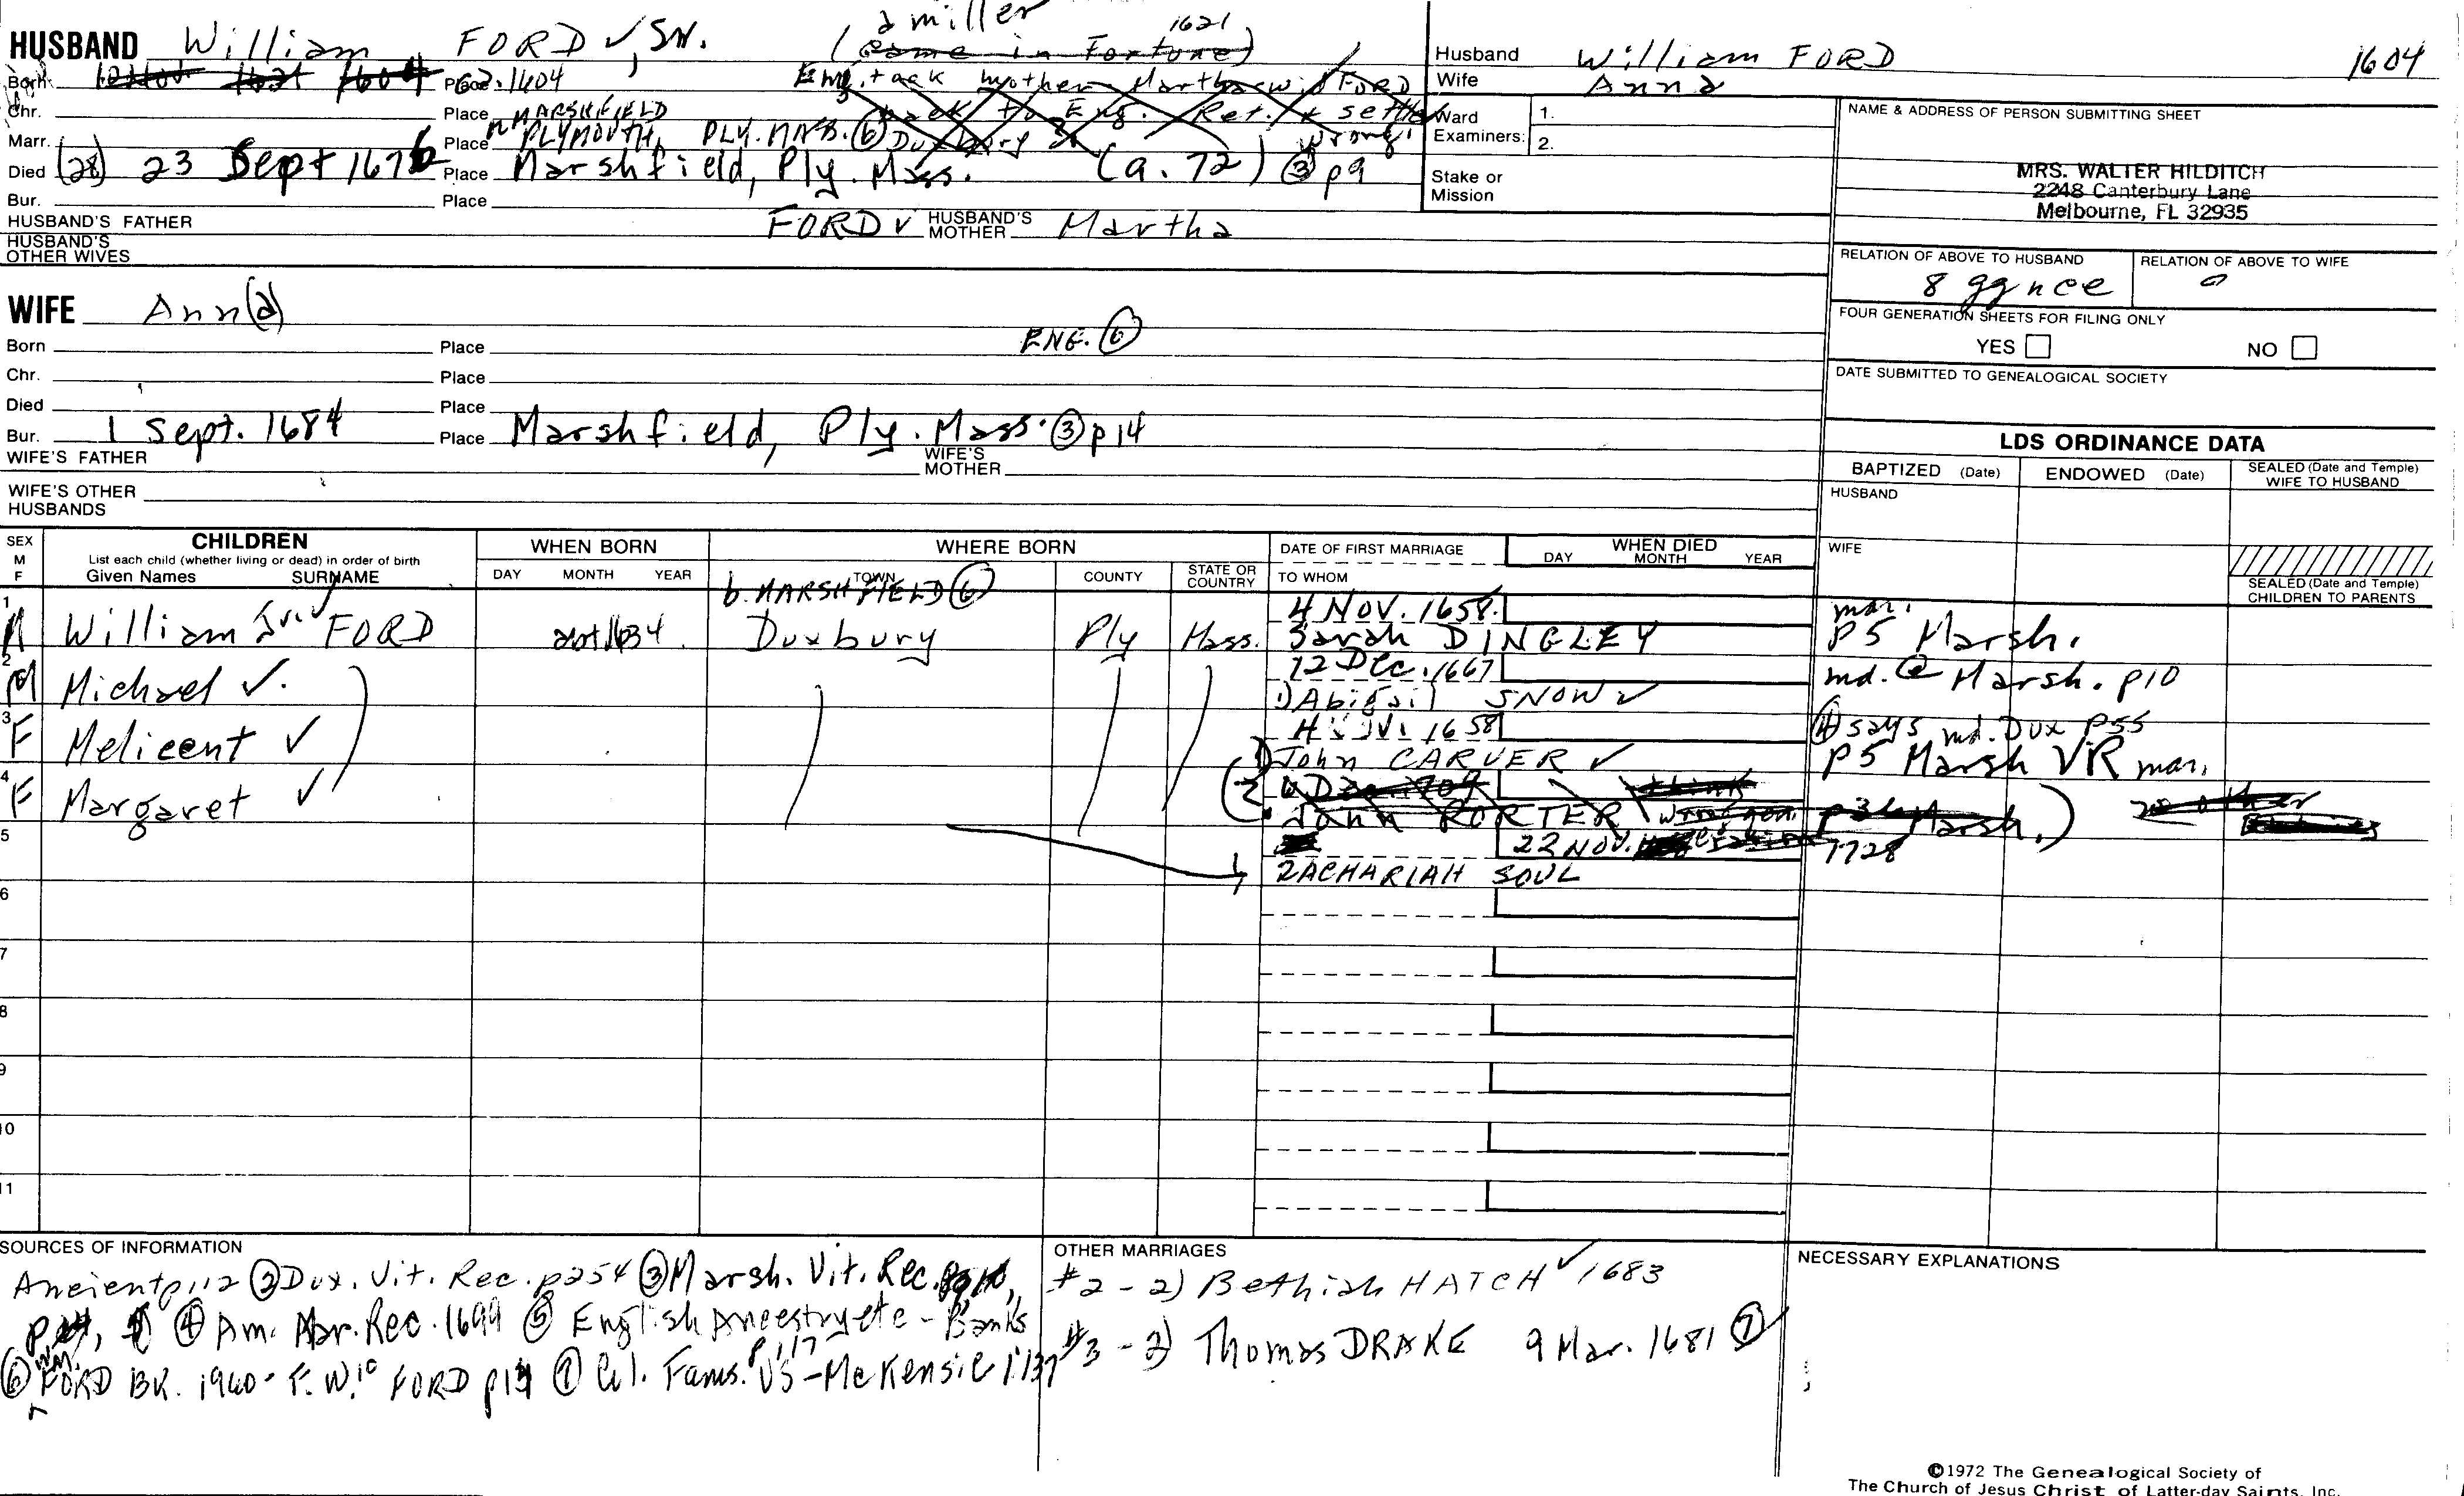 a miller
HUSBAND William FORD ✓, SR. (came in Fortune) 1621
Born 1604 Place cd. 1604
Eng. tack mother Martha wid FORD
Chr. Place n MARSHFIELD back to Eng. Ret. & settle
Marr. Place PLYMOUTH, PLY. MAB. (6) Duxbury wrong!
Died (28) 23 Sept 1676 Place Marshfield, Ply. Mass. (a. 72) (3) p9
Bur. Place
HUSBAND'S FATHER FORD ✓ HUSBAND'S MOTHER Martha
HUSBAND'S OTHER WIVES
Husband William FORD 1604
Wife Anna
Ward 1.
Examiners: 2.
Stake or Mission
NAME & ADDRESS OF PERSON SUBMITTING SHEET
MRS. WALTER HILDITCH
2248 Canterbury Lane
Melbourne, FL 32935
RELATION OF ABOVE TO HUSBAND RELATION OF ABOVE TO WIFE
8 ggnce 0
FOUR GENERATION SHEETS FOR FILING ONLY
YES NO
DATE SUBMITTED TO GENEALOGICAL SOCIETY
WIFE Ann(a)
Born Place ENG. (6)
Chr. Place
Died Place
Bur. 1 Sept. 1684 Place Marshfield, Ply. Mass. (3) p14
WIFE'S FATHER WIFE'S MOTHER
WIFE'S OTHER HUSBANDS
LDS ORDINANCE DATA
BAPTIZED (Date) ENDOWED (Date) SEALED (Date and Temple) WIFE TO HUSBAND
HUSBAND
WIFE
SEALED (Date and Temple) CHILDREN TO PARENTS
SEX M F
CHILDREN
List each child (whether living or dead) in order of birth
Given Names SURNAME
WHEN BORN
DAY MONTH YEAR
WHERE BORN
TOWN COUNTY STATE OR COUNTRY
DATE OF FIRST MARRIAGE
TO WHOM
WHEN DIED
DAY MONTH YEAR
b. MARSHFIELD (6)
1 M William Jr. ✓ FORD abt 1634 Duxbury Ply Mass. 4 NOV. 1658. mar.
Sarah DINGLEY P5 Marsh.
2 M Michael ✓. 12 Dec. 1667 md. @ Marsh. p10
1) Abigail SNOW ✓
3 F Melicent ✓ 1658 (4) says md. Dux P55
1) John CARVER ✓ P5 Marsh VR mar.
4 F Margaret ✓
John PORTER Marsh.)
5 22 NOV. 1728
ZACHARIAH SOUL
6
7
8
9
10
11
SOURCES OF INFORMATION
Ancient p112 (2) Dux. Vit. Rec. p254 (3) Marsh. Vit. Rec.
(4) Am. Mar. Rec. 1699 (5) English Ancestry etc - Banks p117
(6) Wm. FORD BK. 1960 - F. W. FORD (7) Col. Fams. US - McKensie 1:137
OTHER MARRIAGES
#2 - 2) Bethiah HATCH ✓ 1683
#3 - 2) Thomas DRAKE 9 Mar. 1681 (7)
NECESSARY EXPLANATIONS
©1972 The Genealogical Society of
The Church of Jesus Christ of Latter-day Saints, Inc.